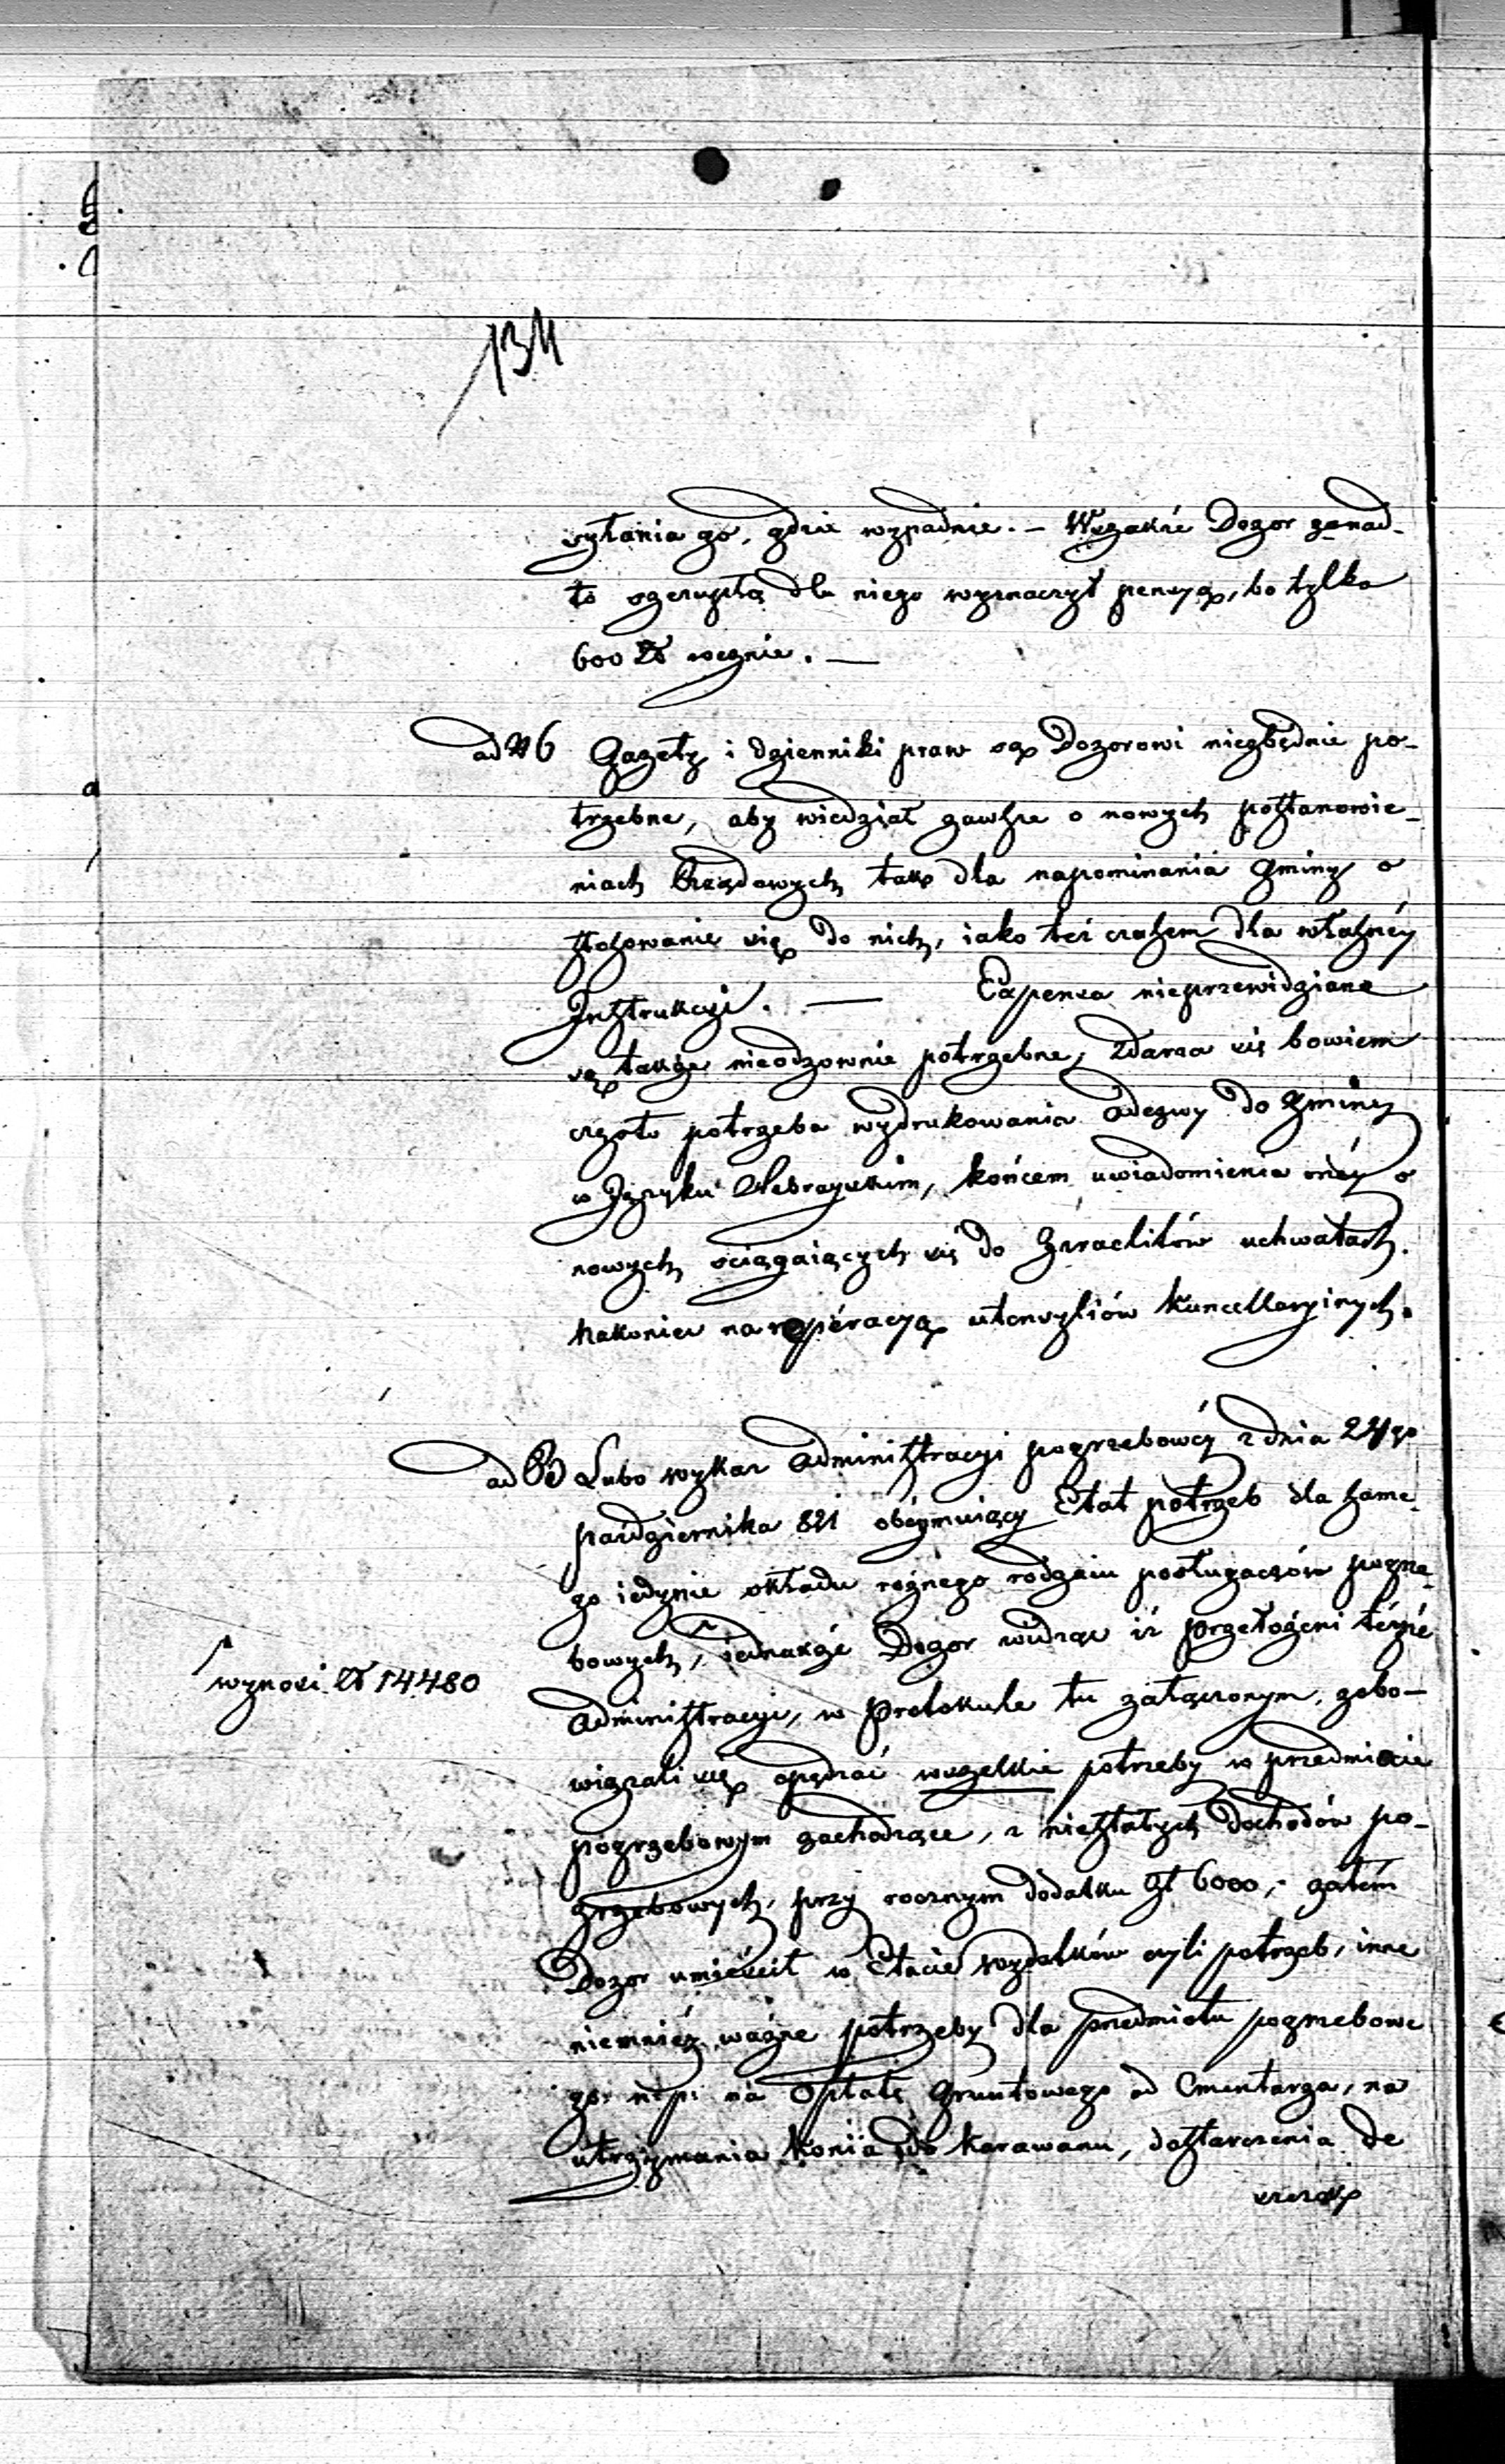 134
syłania go, gdzie wypadnie. — Wszakże Dozor zanad-
to szczupłą dla niego wyznaczył pensyą, bo tylko
600 Zł rocznie. —
ad N 6 Gazety i dzienniki praw są Dozorowi niezbędnie po-
trzebne, aby wiedział zawsze o nowych postanowie-
niach Rządowych, tak dla napominania Gminy o
stosowanie się do nich, iako też czasem dla własnéy
Instrukcyi. — Expensa nieprzewidziane
są także nieodzownie potrzebne, zdarza się bowiem
często potrzeba wydrukowania Odezwy do Gminy
w Języku Hebrayskim, końcem uwiadomienia onéy o
nowych, ściągaiących się do Izraelitów uchwałach.
Nakoniec na reperacyą utensyliów Kancellaryinych.
ad B Lubo wykaz Administracyi pogrzebowéy z dnia 24go
pazdziernika 821 obéymuiący Etat potrzeb dla same-
go iedynie składu rożnego rodzaiu posługaczów pogrze-
bowych, iednakże Dozor widząc iż przełożeni téyże
wynosi Zł 14480
Administracyi, w Protokule tu załączonym, zobo-
wiązali się opędzać wszelkie potrzeby w przedmiocie
pogrzebowym zachodzące, z niestałych dochodów po-
grzebowych, przy rocznym dodatku Zł 6000,- zatém
Dozor umieścił w Etacie wydatków czyli potrzeb, inne
niemniéy ważne potrzeby dla przedmiotu pogrzebowe
go: np: na Opłatę Gruntowego od Cmentarza, na
utrzymania Konia do Karawanu, dostarczenia de
szczek